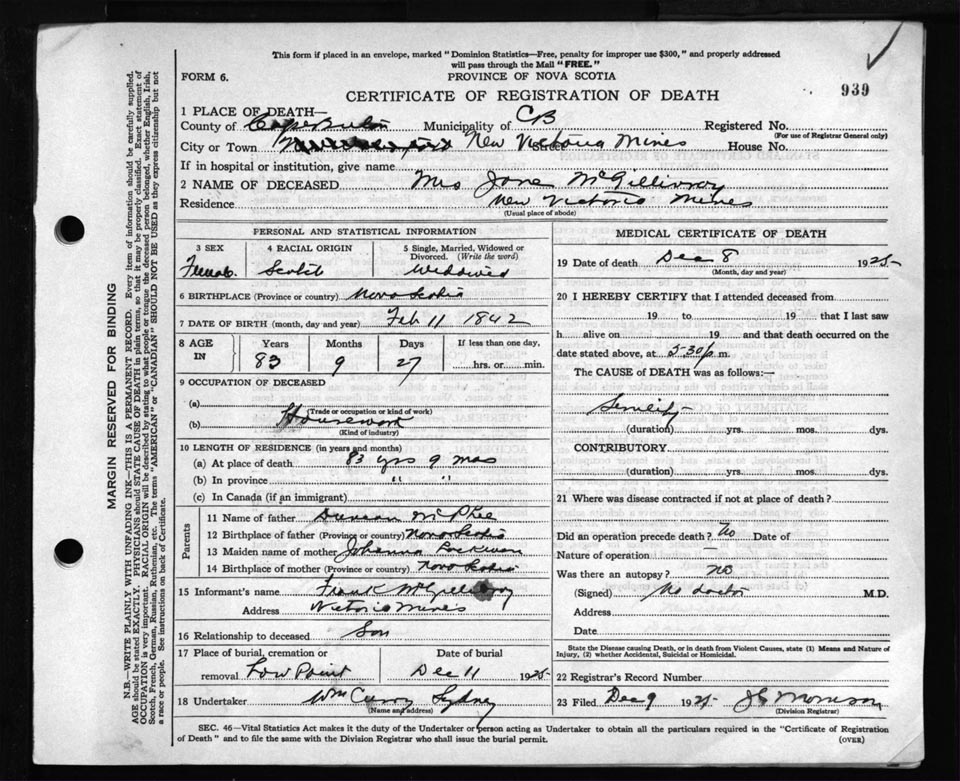 This form if placed in an envelope, marked "Dominion Statistics—Free, penalty for improper use $300," and properly addressed
will pass through the Mail "FREE."
FORM 6.
PROVINCE OF NOVA SCOTIA
939
CERTIFICATE OF REGISTRATION OF DEATH
1 PLACE OF DEATH—
County of Cape Breton Municipality of CB Registered No.
(For use of Registrar General only)
City or Town New Victoria Mines House No.
If in hospital or institution, give name
2 NAME OF DECEASED Mrs Jane McGillivray
Residence New Victoria Mines
(Usual place of abode)
PERSONAL AND STATISTICAL INFORMATION
3 SEX 4 RACIAL ORIGIN 5 Single, Married, Widowed or
Divorced. (Write the word)
Female Scotch Widowed
6 BIRTHPLACE (Province or country) Nova Scotia
7 DATE OF BIRTH (month, day and year) Feb 11 1842
8 AGE IN Years Months Days If less than one day,
83 9 27 hrs. or min.
9 OCCUPATION OF DECEASED
(a)
(Trade or occupation or kind of work)
(b) Housework
(Kind of industry)
10 LENGTH OF RESIDENCE (in years and months)
(a) At place of death 83 yrs 9 mos
(b) In province " "
(c) In Canada (if an immigrant)
Parents
11 Name of father Duncan McPhee
12 Birthplace of father (Province or country) Nova Scotia
13 Maiden name of mother Johanna
14 Birthplace of mother (Province or country) Nova Scotia
15 Informant's name Frank McGillivray
Address Victoria Mines
16 Relationship to deceased Son
17 Place of burial, cremation or Date of burial
removal Low Point Dec 11 1925
18 Undertaker Wm Curry Sydney
(Name and address)
MEDICAL CERTIFICATE OF DEATH
19 Date of death Dec 8 1925
(Month, day and year)
20 I HEREBY CERTIFY that I attended deceased from
19 to 19 that I last saw
h alive on 19 and that death occurred on
date stated above, at 5-30 p m.
The CAUSE of DEATH was as follows:—
Senility
(duration) yrs. mos. dys.
CONTRIBUTORY
(duration) yrs. mos. dys.
21 Where was disease contracted if not at place of death?
Did an operation precede death? No Date of
Nature of operation —
Was there an autopsy? no
(Signed) No doctor M.D.
Address
Date
State the Disease causing Death, or in death from Violent Causes, state (1) Means and Nature of
Injury, (2) whether Accidental, Suicidal or Homicidal.
22 Registrar's Record Number
23 Filed Dec 9 1925 J C Morrison
(Division Registrar)
SEC. 46—Vital Statistics Act makes it the duty of the Undertaker or person acting as Undertaker to obtain all the particulars required in the "Certificate of Registration
of Death" and to file the same with the Division Registrar who shall issue the burial permit.
(OVER)
MARGIN RESERVED FOR BINDING
N.B.—WRITE PLAINLY WITH UNFADING INK—THIS IS A PERMANENT RECORD. Every item of information should be carefully supplied.
AGE should be stated EXACTLY. PHYSICIANS should STATE CAUSE OF DEATH in plain terms, so that it may be properly classified. Exact statement of
OCCUPATION is very important. RACIAL ORIGIN will be described by stating to what people or tongue the deceased person belonged, whether English, Irish,
Scotch, French, German, Russian, Ruthenian, etc. The terms "AMERICAN" or "CANADIAN" SHOULD NOT BE USED as they express citizenship but not
a race or people. See instructions on back of Certificate.